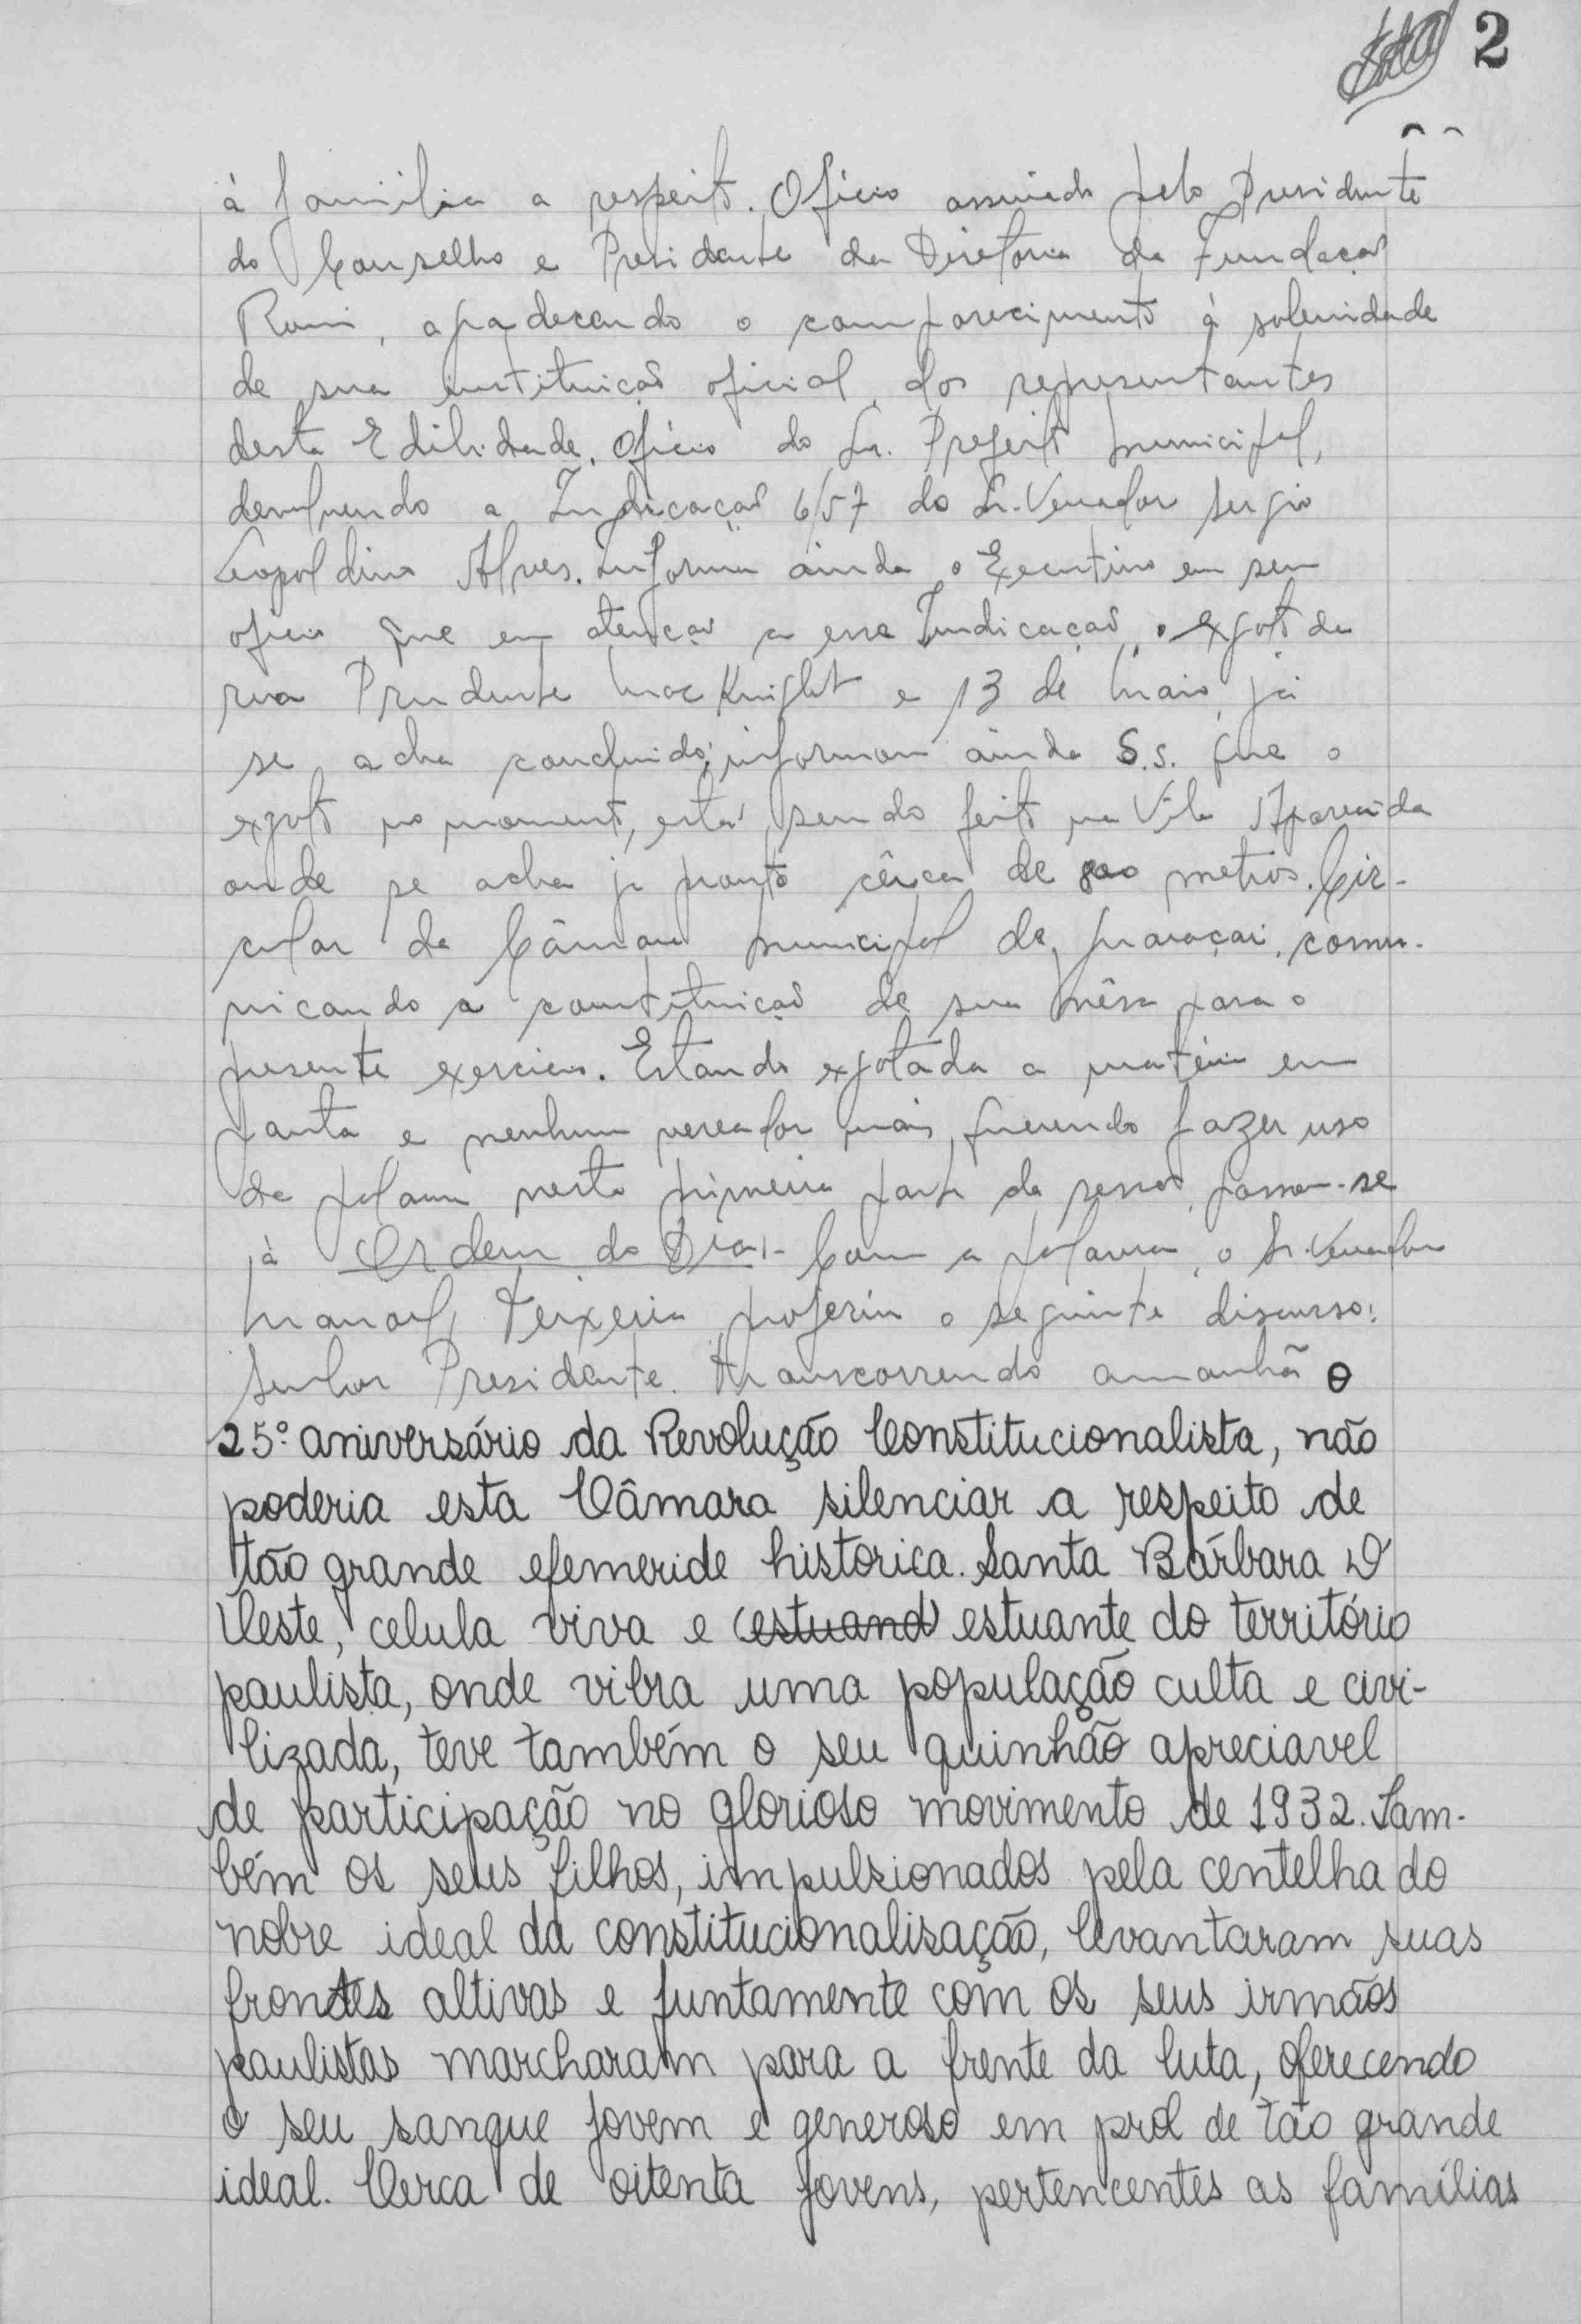 2
à família a respeito. Oficio assinado pelo Presidente
do Conselho e Presidente da Diretoria da Fundação
Romi, agradecendo o comparecimento à solenidade
de sua instituição oficial, dos representantes
desta Edilidade. Oficio do Sr. Prefeito Municipal,
devolvendo a Indicação 6/57 do Sr. Vereador Sergio
Leopoldino Alves. Informa ainda o Executivo em seu
oficio que em atenção a essa Indicação, o exgoto da
rua Prudente Mac Knight e 13 de Maio, já
se acha concluido; informou ainda S.S. que o
exgoto no momento, está sendo feito na Vila Aparecida
onde se acha já pronto cêrca de 800 metros. Cir-
cular da Câmara Municipal de comu-
nicando a constituição de sua Mêsa para o
presente exercicio. Estando exgotada a matéria em
pauta e nenhum vereador mais querendo fazer uso
da palavra nesta primeira parte da sessão, passou-se
à Ordem do Dia.- Com a palavra, o Sr. Vereador
Manoel Teixeira proferiu o seguinte discurso:
Senhor Presidente. Transcorrendo amanhã o
25º aniversário da Revolução Constitucionalista, não
poderia esta Câmara silenciar a respeito de
tão grande efemeride historica. Santa Bárbara D'
Oeste, celula viva e (estuand) estuante do território
paulista, onde vibra uma população culta e civi-
lizada, teve também o seu quinhão apreciavel
de participação no glorioso movimento de 1932. Tam-
bém os seus filhos, impulsionados pela centelha do
nobre ideal da constitucionalisação, levantaram suas
frontes altivas e juntamente com os seus irmãos
paulistas marcharam para a frente da luta, oferecendo
o seu sangue jovem e generoso em prol de tão grande
ideal. Cerca de oitenta jovens, pertencentes as famílias